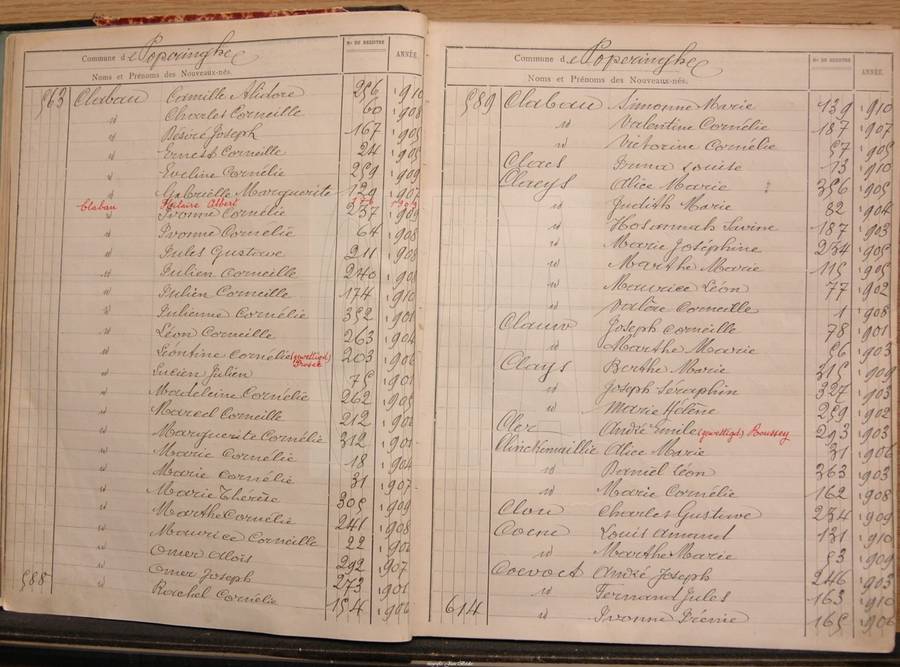 Commune de Poperinghe
Nos DE REGISTRE
ANNÉE
Noms et Prénoms des Nouveaux-nés.
563 Clabau Camille Alidore 256 1910
id Charles Corneille 60 1908
id Désiré Joseph 167 1905
id Ernest Corneille 24 1905
id Eveline Cornélie 259 1909
id Gabrielle Marguerite 129 1907
Clabau Hilaire Albert 176 1904
id Ivonne Cornélie 237 1909
id Ivonne Cornélie 64 1908
id Jules Gustave 211 1908
id Julien Corneille 240 1908
id Julien Corneille 174 1910
id Julienne Cornélie 352 1901
id Léon Corneille 263 1904
id Léontine Cornélie (gewettigd) 203 1906
id Lucien Julien 75 1901
id Madeleine Cornélie 262 1905
id Marcel Corneille 212 1902
id Marguerite Cornélie 312 1902
id Marie Cornélie 18 1904
id Marie Cornélie 31 1907
id Marie Thérèse 305 1909
id Marthe Cornélie 241 1908
id Maurice Corneille 22 1902
id Omer Aloïs 292 1907
id Omer Joseph 273 1901
588 id Rachel Cornélie 154 1906
Commune de Poperinghe
Nos DE REGISTRE
ANNÉE
Noms et Prénoms des Nouveaux-nés.
589 Clabau Simonne Marie 139 1910
id Valentine Cornélie 187 1907
id Victorine Cornélie 57 1905
Claes Irma Louise 13 1910
Claeys Alice Marie 356 1905
id Judith Marie 82 1904
id Hosannah Savine 187 1903
id Marie Joséphine 234 1905
id Marthe Marie 115 1905
id Maurice Léon 77 1902
id Valère Corneille 1 1908
Clauw Joseph Corneille 78 1901
id Marthe Marie 56 1903
Clays Berthe Marie 315 1909
id Joseph Séraphin 327 1903
id Marie Hélène 259 1902
Cler André Emile (gewettigd) Boussey 293 1903
Clinckemaillie Alice Marie 31 1906
id Daniel Léon 363 1903
id Marie Cornélie 162 1908
Clou Charles Gustave 234 1909
Coene Louis Amand 131 1910
id Marthe Marie 53 1909
Coevoet André Joseph 246 1903
id Fernand Jules 163 1910
614 id Ivonne Irénie 165 1906